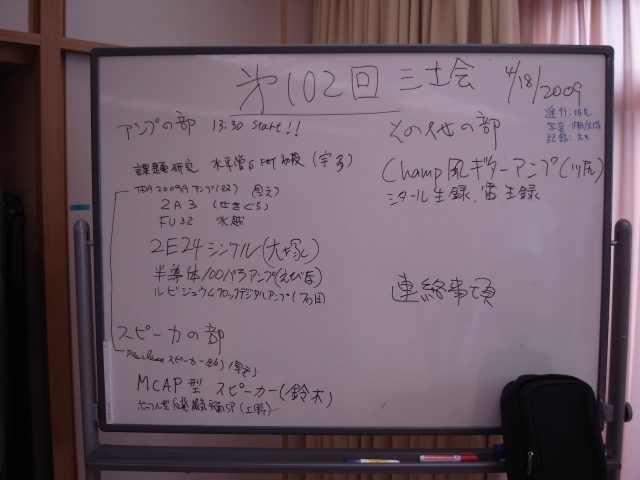 第102回 三土会 4/18/2009
進行:
写真:
記録:
アンプの部 13:30 Start!!
課題研究 水平管 S FET 初段 (宇多)
TDA2009Aアンプ
2A3 (せきぐち)
FU32 水越
2E24 シングル(大塚)
半導体100パラアンプ(えびな)
ルビジュウムクロックデジタルアンプ
スピーカの部
Peerless スピーカー
MCAP型 スピーカー(鈴木)
SP (上野)
その他の部
Champ風ギターアンプ
シタール生録、雷生録
連絡事項